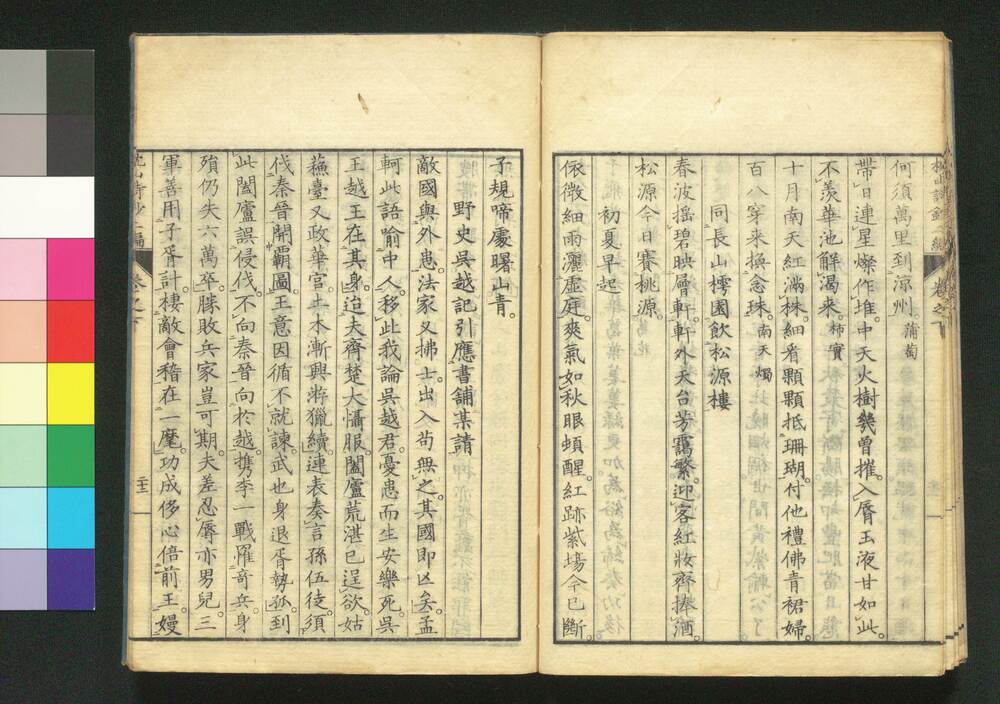 何須萬里到涼州。蒲萄
帶日連星燦作堆。中天火樹幾曾摧。入脣玉液甘如此。
不羨華池解渴來。柿實
十月南天紅滿株。細看顆顆抵珊瑚。付他禮佛青裙婦。
百八穿來換念珠。南天燭
同長山樗園飲松源樓
春波搖碧映層軒。軒外天台芳靄繁。迎客紅妝齊捧酒。
松源今日賽桃源。
初夏早起
依微細雨灑虛庭。爽氣如秋眼頓醒。紅跡紫場今已斷。
子規啼處曙山青。
野史吳越記引應書舖某請
敵國與外患。法家又拂士。出入苟無之。其國即凶矣。孟
軻此語喻中人。移此我論吳越君。憂患而生安樂死。吳
王越王在其身。迨夫齊楚大懾服。闔廬荒湛已逞欲。姑
蘓臺又政華宮。土木漸興游獵續。連表奏言孫伍徒。須
伐秦晉開覇圖。王意因循不就諫。武也身退胥勢孤。到
此闔廬誤侵伐。不向秦晉向於越。携李一戰罹奇兵。身
殞仍失六萬卒。勝敗兵家豈可期。夫差忍辱亦男兒。三
軍善用子胥計。棲敵會稽在一麾。功成侈心倍前王。嫚
卷之下
二十二